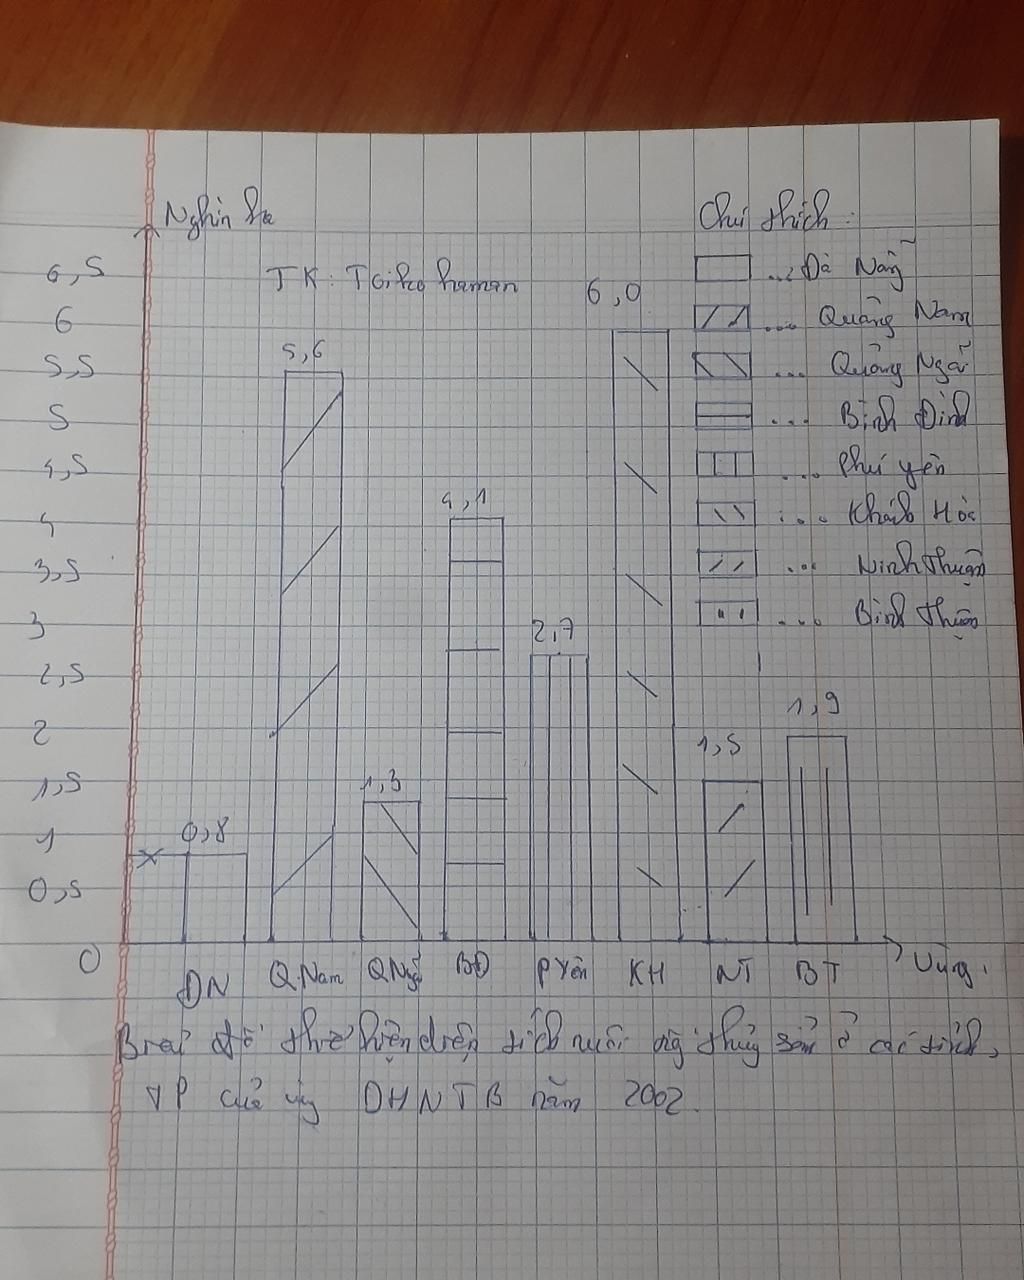 Nghìn ha
Chú thích:
TK: Toiko haman
6,5
6
5,5
5
4,5
4
3,5
3
2,5
2
1,5
1
0,5
0
0,8
5,6
1,3
4,1
2,7
6,0
1,5
1,9
... Đà Nẵng
... Quảng Nam
... Quảng Ngãi
... Bình Định
... Phú yên
... Khánh Hòa
... Ninh thuận
... Bình thuận
ĐN Q.Nam Q.Ngãi BĐ P Yên KH NT BT Vùng.
Biểu đồ thể hiện diện tích nuôi trồng thủy sản ở các tỉnh,
TP của vùng DHNTB năm 2002.